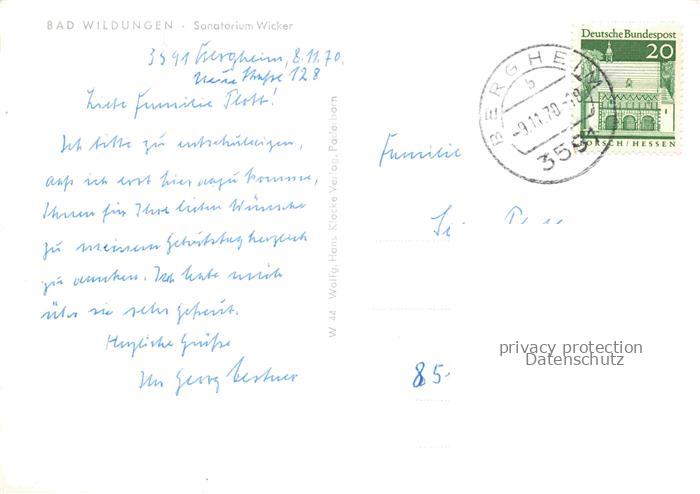 BAD WILDUNGEN · Sanatorium Wicker
3591 Bergheim, 8.11.70.
Neue Straße 128
Liebe Familie Plott!
Ich bitte zu entschuldigen,
daß ich erst hier dazu komme,
Ihnen für Ihre lieben Wünsche
zu meinem Geburtstag herzlich
zu danken. Ich habe mich
über sie sehr gefreut.
Herzliche Grüße
Ihr Georg
W 44 Wolfg. Hans Klocke Verlag, Paderborn
Deutsche Bundespost
20
LORSCH/HESSEN
BERGHEIM
b
-9.11.70-18
3591
Familie
85
privacy protection
Datenschutz